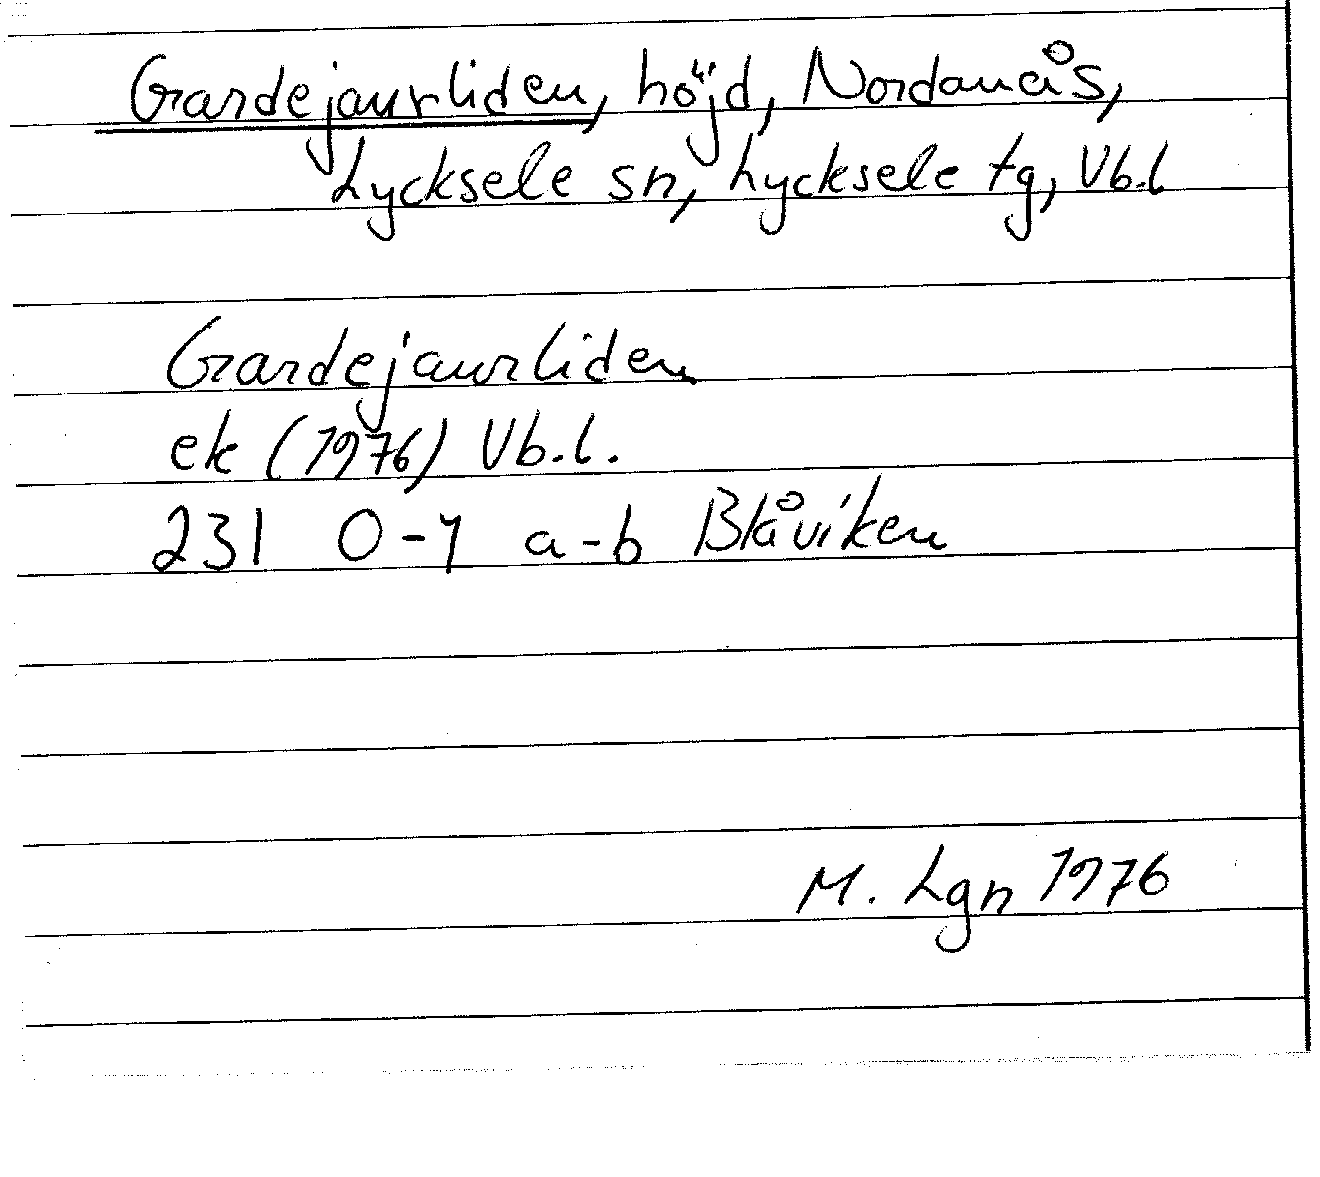 Gardejaurliden, höjd, Nordanås,
Lycksele sn, Lycksele tg, Vb.l
Gardejaurliden
ek (1976) Vb.l.
231 0-1 a-b Blåviken
M. Lgn 1976